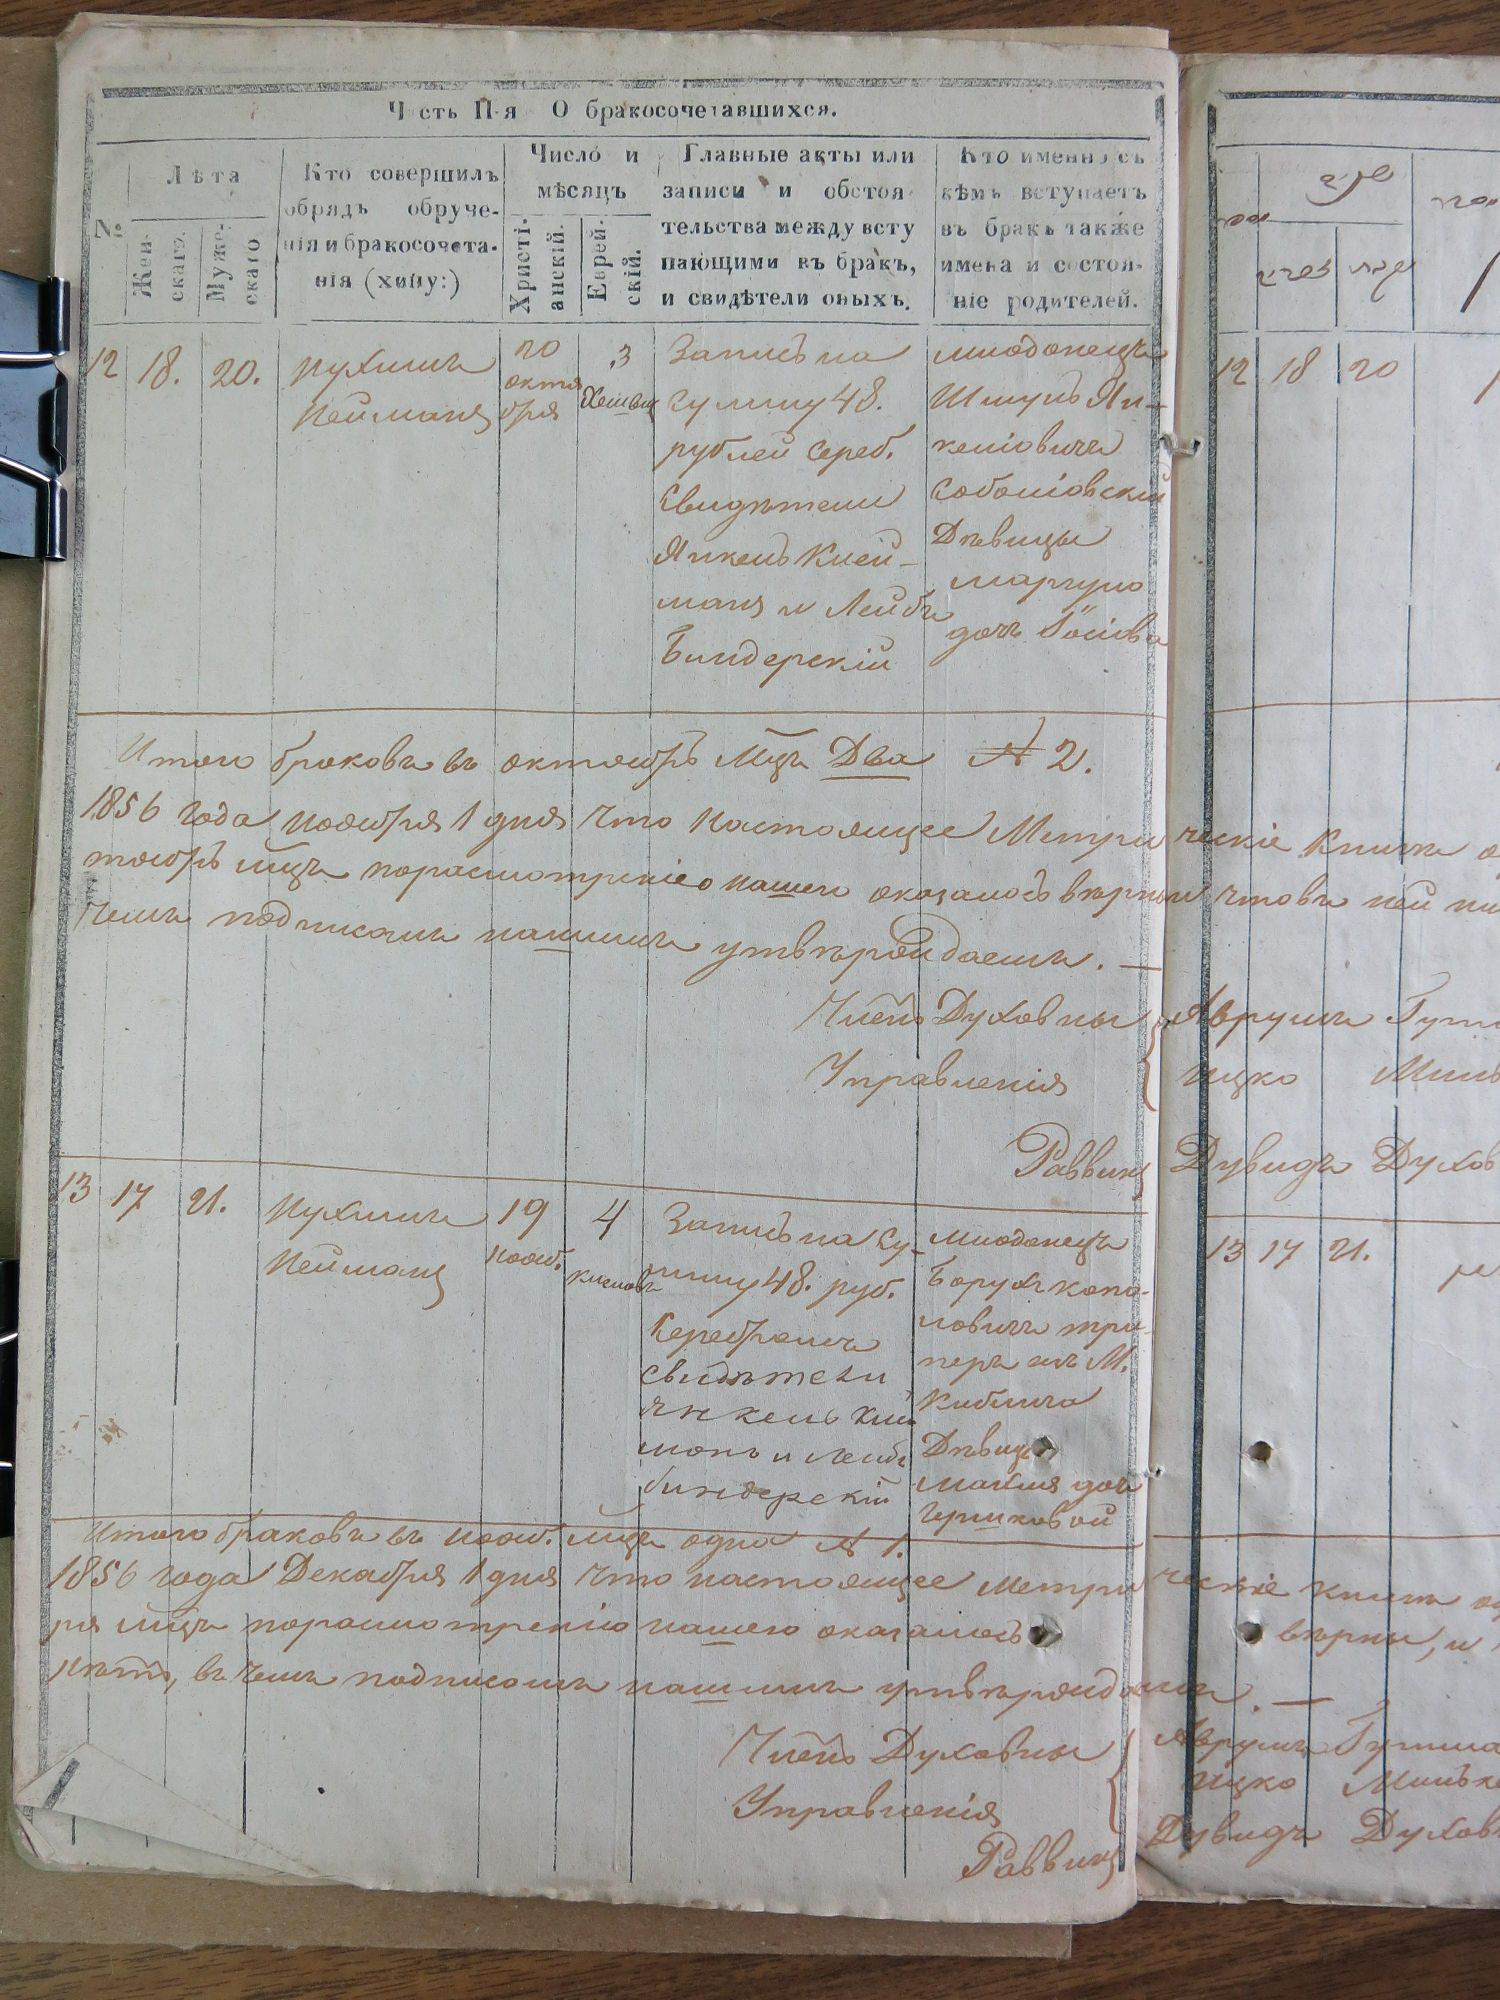 Часть II-я О бракосочетавшихся.
№
Лѣта
Женскаго.
Мужескаго
Кто совершилъ
обрядъ обруче-
нія и бракосочета-
нія (хипу:)
Число и
мѣсяцъ
Христі-
анскій.
Еврей-
скій.
Главные акты или
записи и обстоя-
тельства между всту
пающими въ бракъ,
и свидѣтели оныхъ.
Кто именно съ
кѣмъ вступаетъ
въ бракъ также
имена и состоя-
ніе родителей.
12 18. 20.
Нухимъ
Нейманъ
20
октя
бря
3
Хешван
Запись на
сумму 48.
рублей сереб.
Свидѣтели
Янкель Клей-
манъ и Лейбъ
Биндерскій
млодонецъ
Шмуль Ян-
келіовичъ
Соболіовскій
Дѣвицы
маргуло
дочь Іосіова
12 18 20
Итого браковъ въ октябрѣ Мцѣ Два № 2.
1856 года ноября 1 дня что настоящее Метрическіе Книги
тябрѣ мцѣ порасмотренію нашего оказалось вѣрны что въ ней
чемъ подписомъ нашимъ утвѣрждаемъ. —
Члены Духовны Аврумъ
Управленія Ицко
Раввинъ Дувидъ Духов
13 17 21.
Нухимъ
Нейманъ
19
нояб.
4
кислевъ
Запись на су-
мму 48. руб.
Серебромъ
свидѣтели
янкель клий
манъ и лейбъ
биндерскій
Млодонецъ
Борухъ копе-
ловичъ три-
перъ изъ М.
Кублича
Дѣвицы
Малкия дочь
Чериковой
13 17 21.
Итого браковъ въ нояб. мцѣ одна № 1.
1856 года Декабря 1 дня что настоящее метрическіе книги
ря мцѣ порасмотренію нашего оказалось вѣрны, и
нѣтъ, въ чемъ подписомъ нашимъ утвѣрждаемъ. —
Члены Духовны Аврумъ
Управленія Ицко
Раввинъ Дувидъ Духов